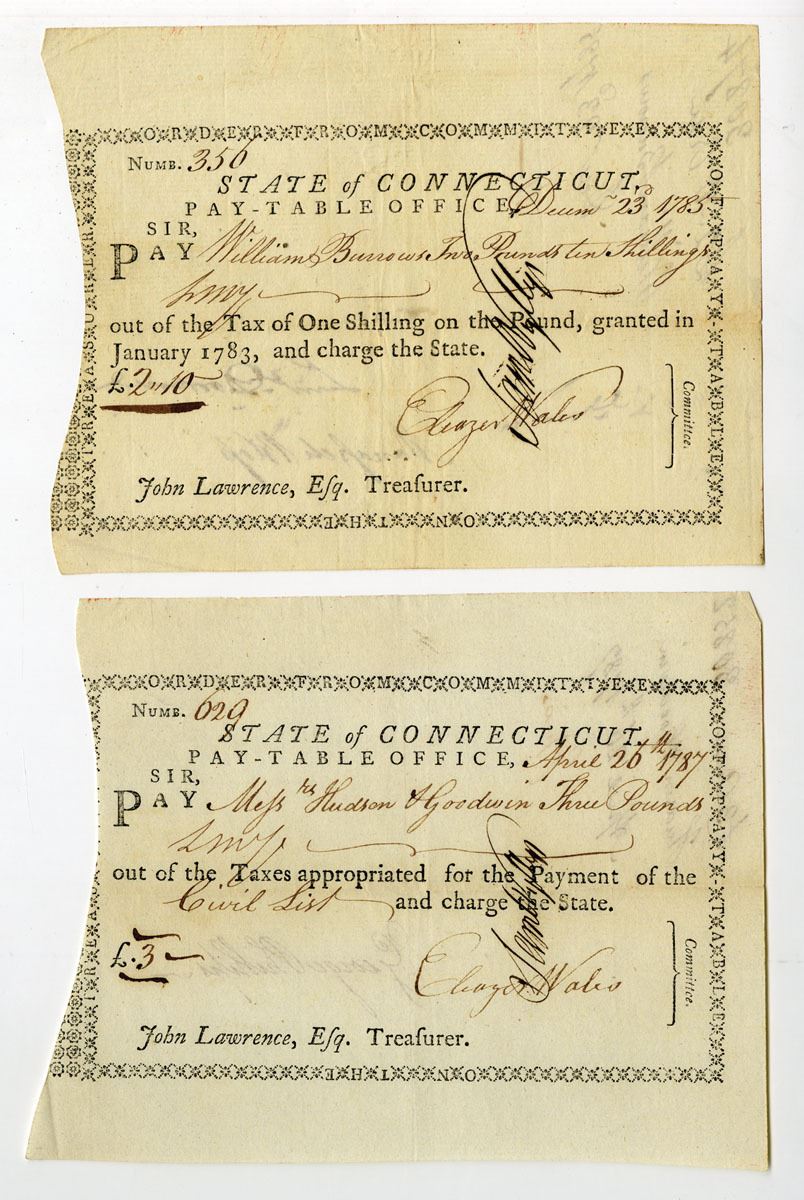 ORDER FROM COMMITTEE
OF PAY-TABLE
ON THE
TREASURER
NUMB. 356
STATE of CONNECTICUT,
PAY-TABLE OFFICE, Decemr 23d 1785
SIR,
PAY William Burrows Two Pounds ten Shillings
LMy
out of the Tax of One Shilling on the Pound, granted in
January 1783, and charge the State.
£.2〃10
Eleazer Wales
Saml Wyllys
Committee.
John Lawrence, Eſq. Treaſurer.
ORDER FROM COMMITTEE
OF PAY-TABLE
ON THE
TREAS
NUMB. 629
STATE of CONNECTICUT,
PAY-TABLE OFFICE, April 26th 1787
SIR,
PAY Messrs Hudson & Goodwin Three Pounds
LMy
out of the Taxes appropriated for the Payment of the
Civil List and charge the State.
£.3
Eleazer Wales
Saml Wyllys
Committee.
John Lawrence, Eſq. Treaſurer.